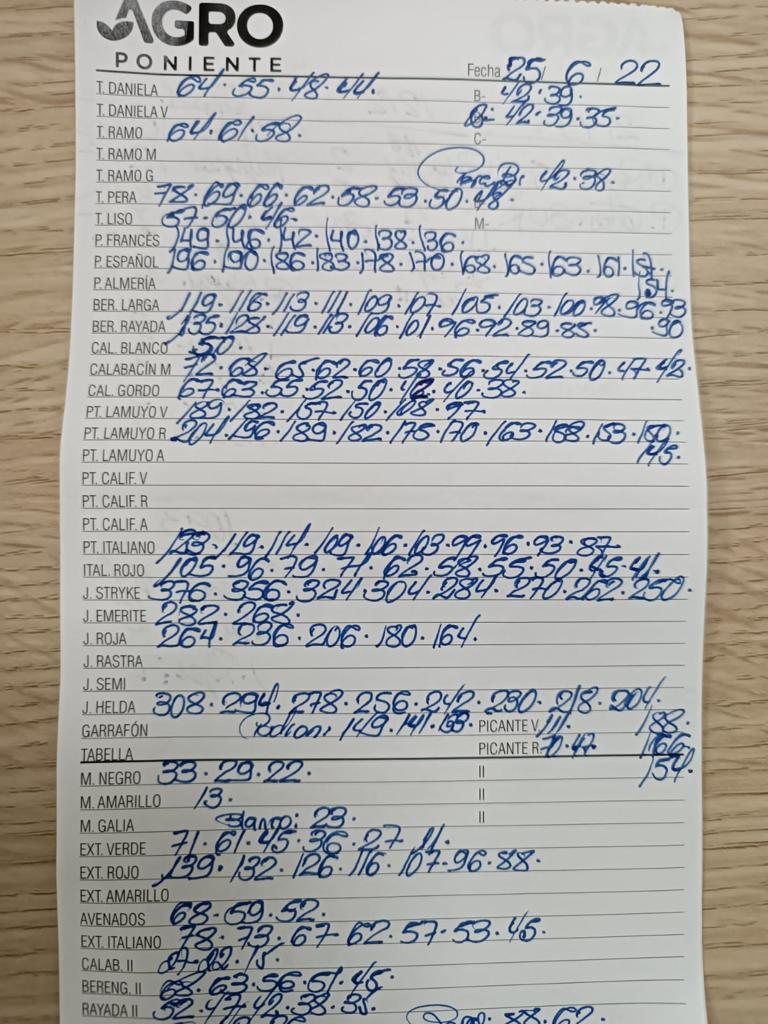 AGRO
PONIENTE
Fecha 25/ 6 / 22
T. DANIELA 64·55·48·44· B- 42·39·
T. DANIELA V 42·39·35·
T. RAMO 64·61·58· C-
T. RAMO M
T. RAMO G 42·38·
T. PERA 78·69·66·62·58·53·50·48·
T. LISO 57·50·46· M-
P. FRANCÉS 149·146·142·140·138·136·
P. ESPAÑOL 196·190·186·183·178·170·168·165·163·161·157·
P. ALMERÍA 154·
BER. LARGA 119·116·113·111·109·107·105·103·100·98·96·93
BER. RAYADA 135·128·119·113·106·101·96·92·89·85· 90
CAL. BLANCO 50·
CALABACÍN M 72·68·65·62·60·58·56·54·52·50·47·42·
CAL. GORDO 67·63·55·52·50·42·40·38·
PT. LAMUYO V 189·182·157·150·108·97·
PT. LAMUYO R 204·196·189·182·175·170·163·158·153·150·
PT. LAMUYO A 145·
PT. CALIF. V
PT. CALIF. R
PT. CALIF. A
PT. ITALIANO 123·119·114·109·106·103·99·96·93·87·
ITAL. ROJO 105·96·79·71·62·58·55·50·45·41·
J. STRYKE 376·356·324·304·284·270·262·250·
J. EMERITE 282·268·
J. ROJA 264·236·206·180·164·
J. RASTRA
J. SEMI
J. HELDA 308·294·278·256·242·230·218·204·
GARRAFÓN 149·141·133· PICANTE V 111· 188·
TABELLA PICANTE R 70·47· 166·
M. NEGRO 33·29·22· II 154·
M. AMARILLO 13· II
M. GALIA Blanco: 23· II
EXT. VERDE 71·61·45·36·27·11·
EXT. ROJO 139·132·126·116·107·96·88·
EXT. AMARILLO
AVENADOS 68·59·52·
EXT. ITALIANO 78·73·67·62·57·53·45·
CALAB. II 27·22·15·
BERENG. II 68·63·56·51·45·
RAYADA II 52·47·42·38·35·
88·62·